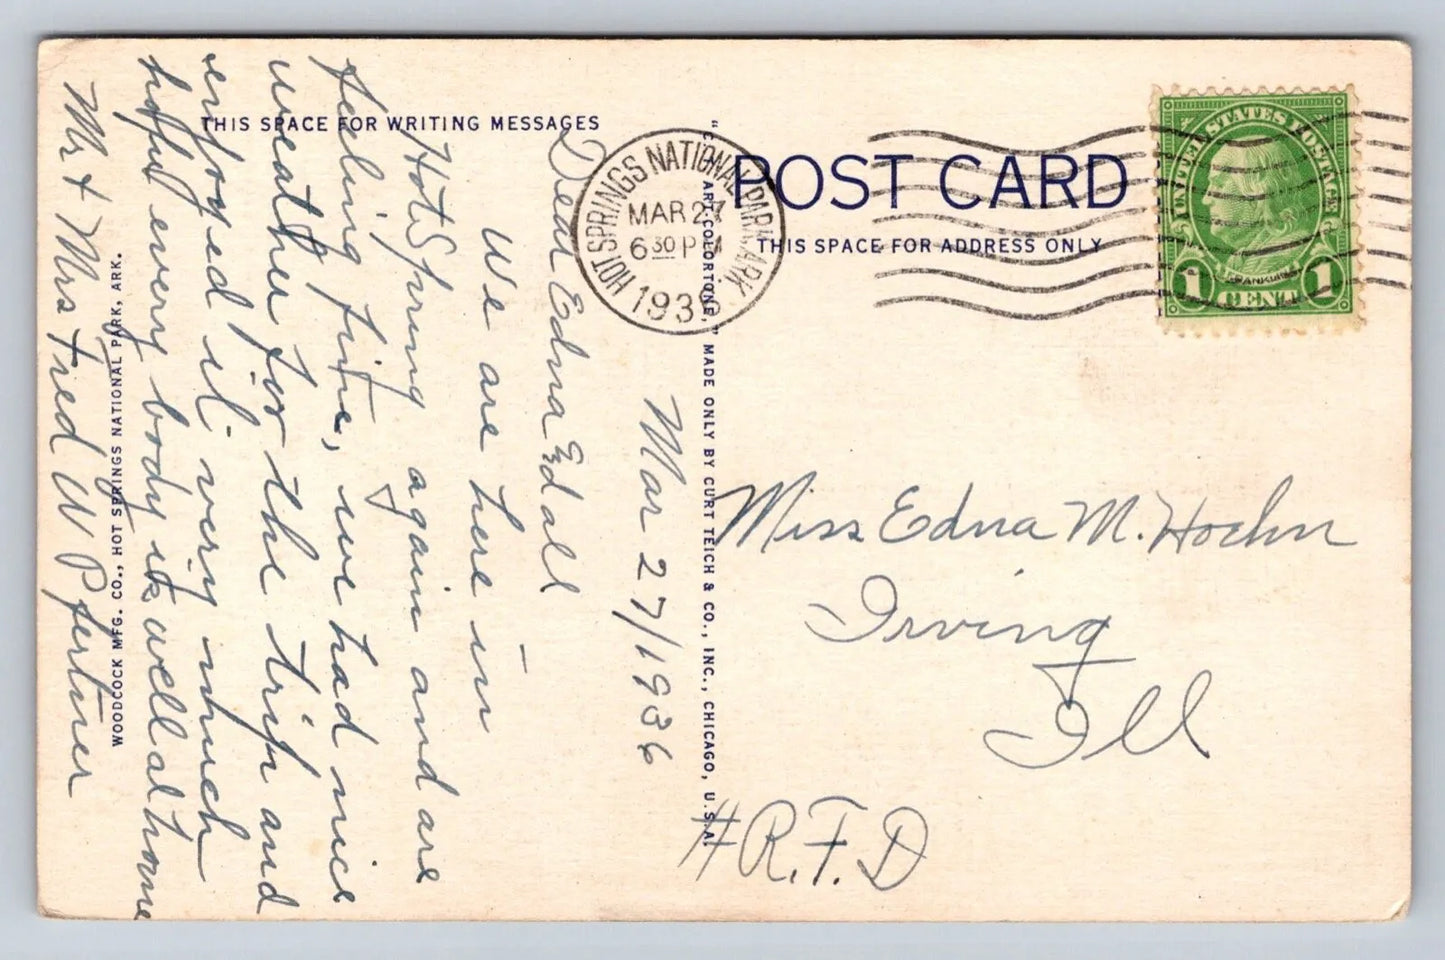 THIS SPACE FOR WRITING MESSAGES
POST CARD
THIS SPACE FOR ADDRESS ONLY
HOT SPRINGS NATIONAL PARK, ARK
MAR 27
6 30 PM
1936
UNITED STATES POSTAGE
FRANKLIN
1 CENT 1
"C.T. ART-COLORTONE," MADE ONLY BY CURT TEICH & CO., INC., CHICAGO, U.S.A.
WOODCOCK MFG. CO., HOT SPRINGS NATIONAL PARK, ARK.
Mar 27/1936
Dear Edna End all
We are here in
Hot Spring again and are
feeling fine, we had nice
weather for the trip and
enjoyed it very much
hope every body is well at home
Mr + Mrs Fred W
Miss Edna M. Hoehn
Irving
Ill
#R.F.D